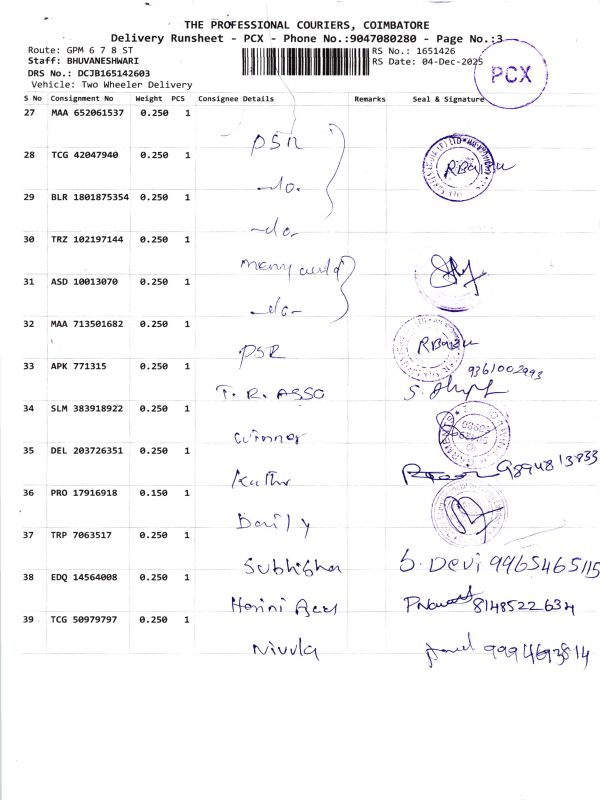 THE PROFESSIONAL COURIERS, COIMBATORE
Delivery Runsheet - PCX - Phone No.:9047080280 - Page No.:3
Route: GPM 6 7 8 ST
RS No.: 1651426
Staff: BHUVANESHWARI
RS Date: 04-Dec-2025
DRS No.: DCJB165142603
PCX
Vehicle: Two Wheeler Delivery
S No Consignment No Weight PCS Consignee Details Remarks Seal & Signature
27 MAA 652061537 0.250 1
PSR
28 TCG 42047940 0.250 1
RBabu
-do-
29 BLR 1801875354 0.250 1
-do-
30 TRZ 102197144 0.250 1
31 ASD 10013070 0.250 1
-do-
32 MAA 713501682 0.250 1
PSR
RBabu
33 APK 771315 0.250 1
9361002993
T. R. ASSO
34 SLM 383918922 0.250 1
Winner
35 DEL 203726351 0.250 1
9894813933
36 PRO 17916918 0.150 1
Daily
37 TRP 7063517 0.250 1
Subhiksha S. Devi 9965465115
38 EDQ 14564008 0.250 1
Harini 8148522634
39 TCG 50979797 0.250 1
Nivula 9994693814